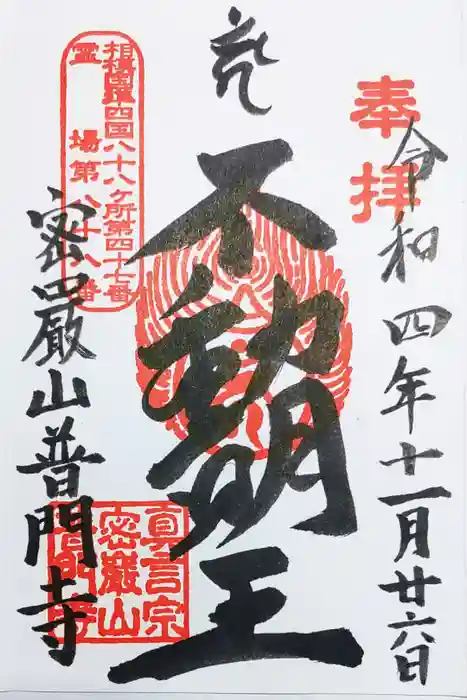 奉拝
令和四年十一月廿六日
不動明王
相模國準四国八十八ヶ所第四十七番
霊場第八十八番
密嚴山普門寺
真言宗
密嚴山
普門寺